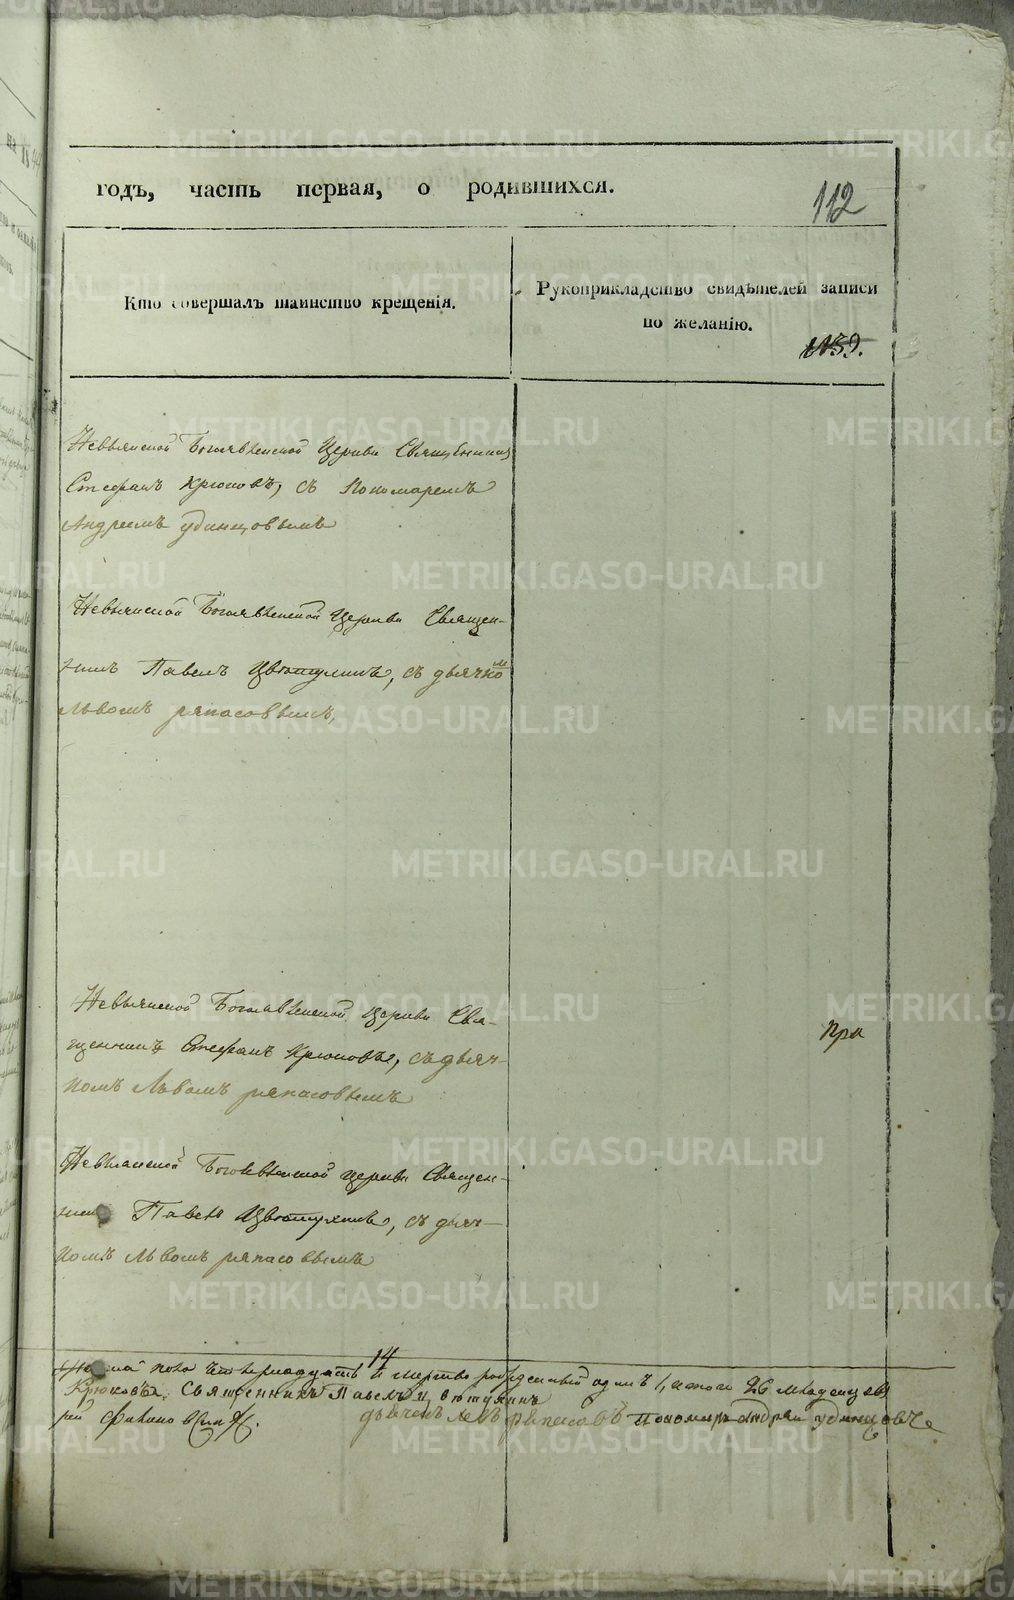 годъ, часть первая, о родившихся.
112
Кто совершалъ таинство крещенія.
Рукоприкладство свидѣтелей записи
по желанію.
1139.
Невьянской Богоявленской Церкви Священникъ
Стефанъ Крюковъ, съ Пономаремъ
Андреемъ удинцовымъ
Невьянской Богоявленской Церкви Священ-
никъ Павелъ Цвѣтухинъ, съ дьячкомъ
Львомъ ряпасовымъ,
Невьянской Богоявленской Церкви Свя-
щенникъ Стефанъ Крюковъ, съ дьяч-
комъ Львомъ ряпасовымъ
При
Невьянской Богоявленской Церкви Священ-
никъ Павелъ Цвѣтухинъ, съ дьяч-
комъ Львомъ ряпасовымъ
14
мужеска пола четырнадцать и мертво рожденный одинъ 1, итого 26 младенцовъ
Крюковъ. Священникъ Павелъ Цвѣтухинъ
дьячекъ Левъ ряпасовъ Пономарь Андрей удинцовъ
METRIKI.GASO-URAL.RU